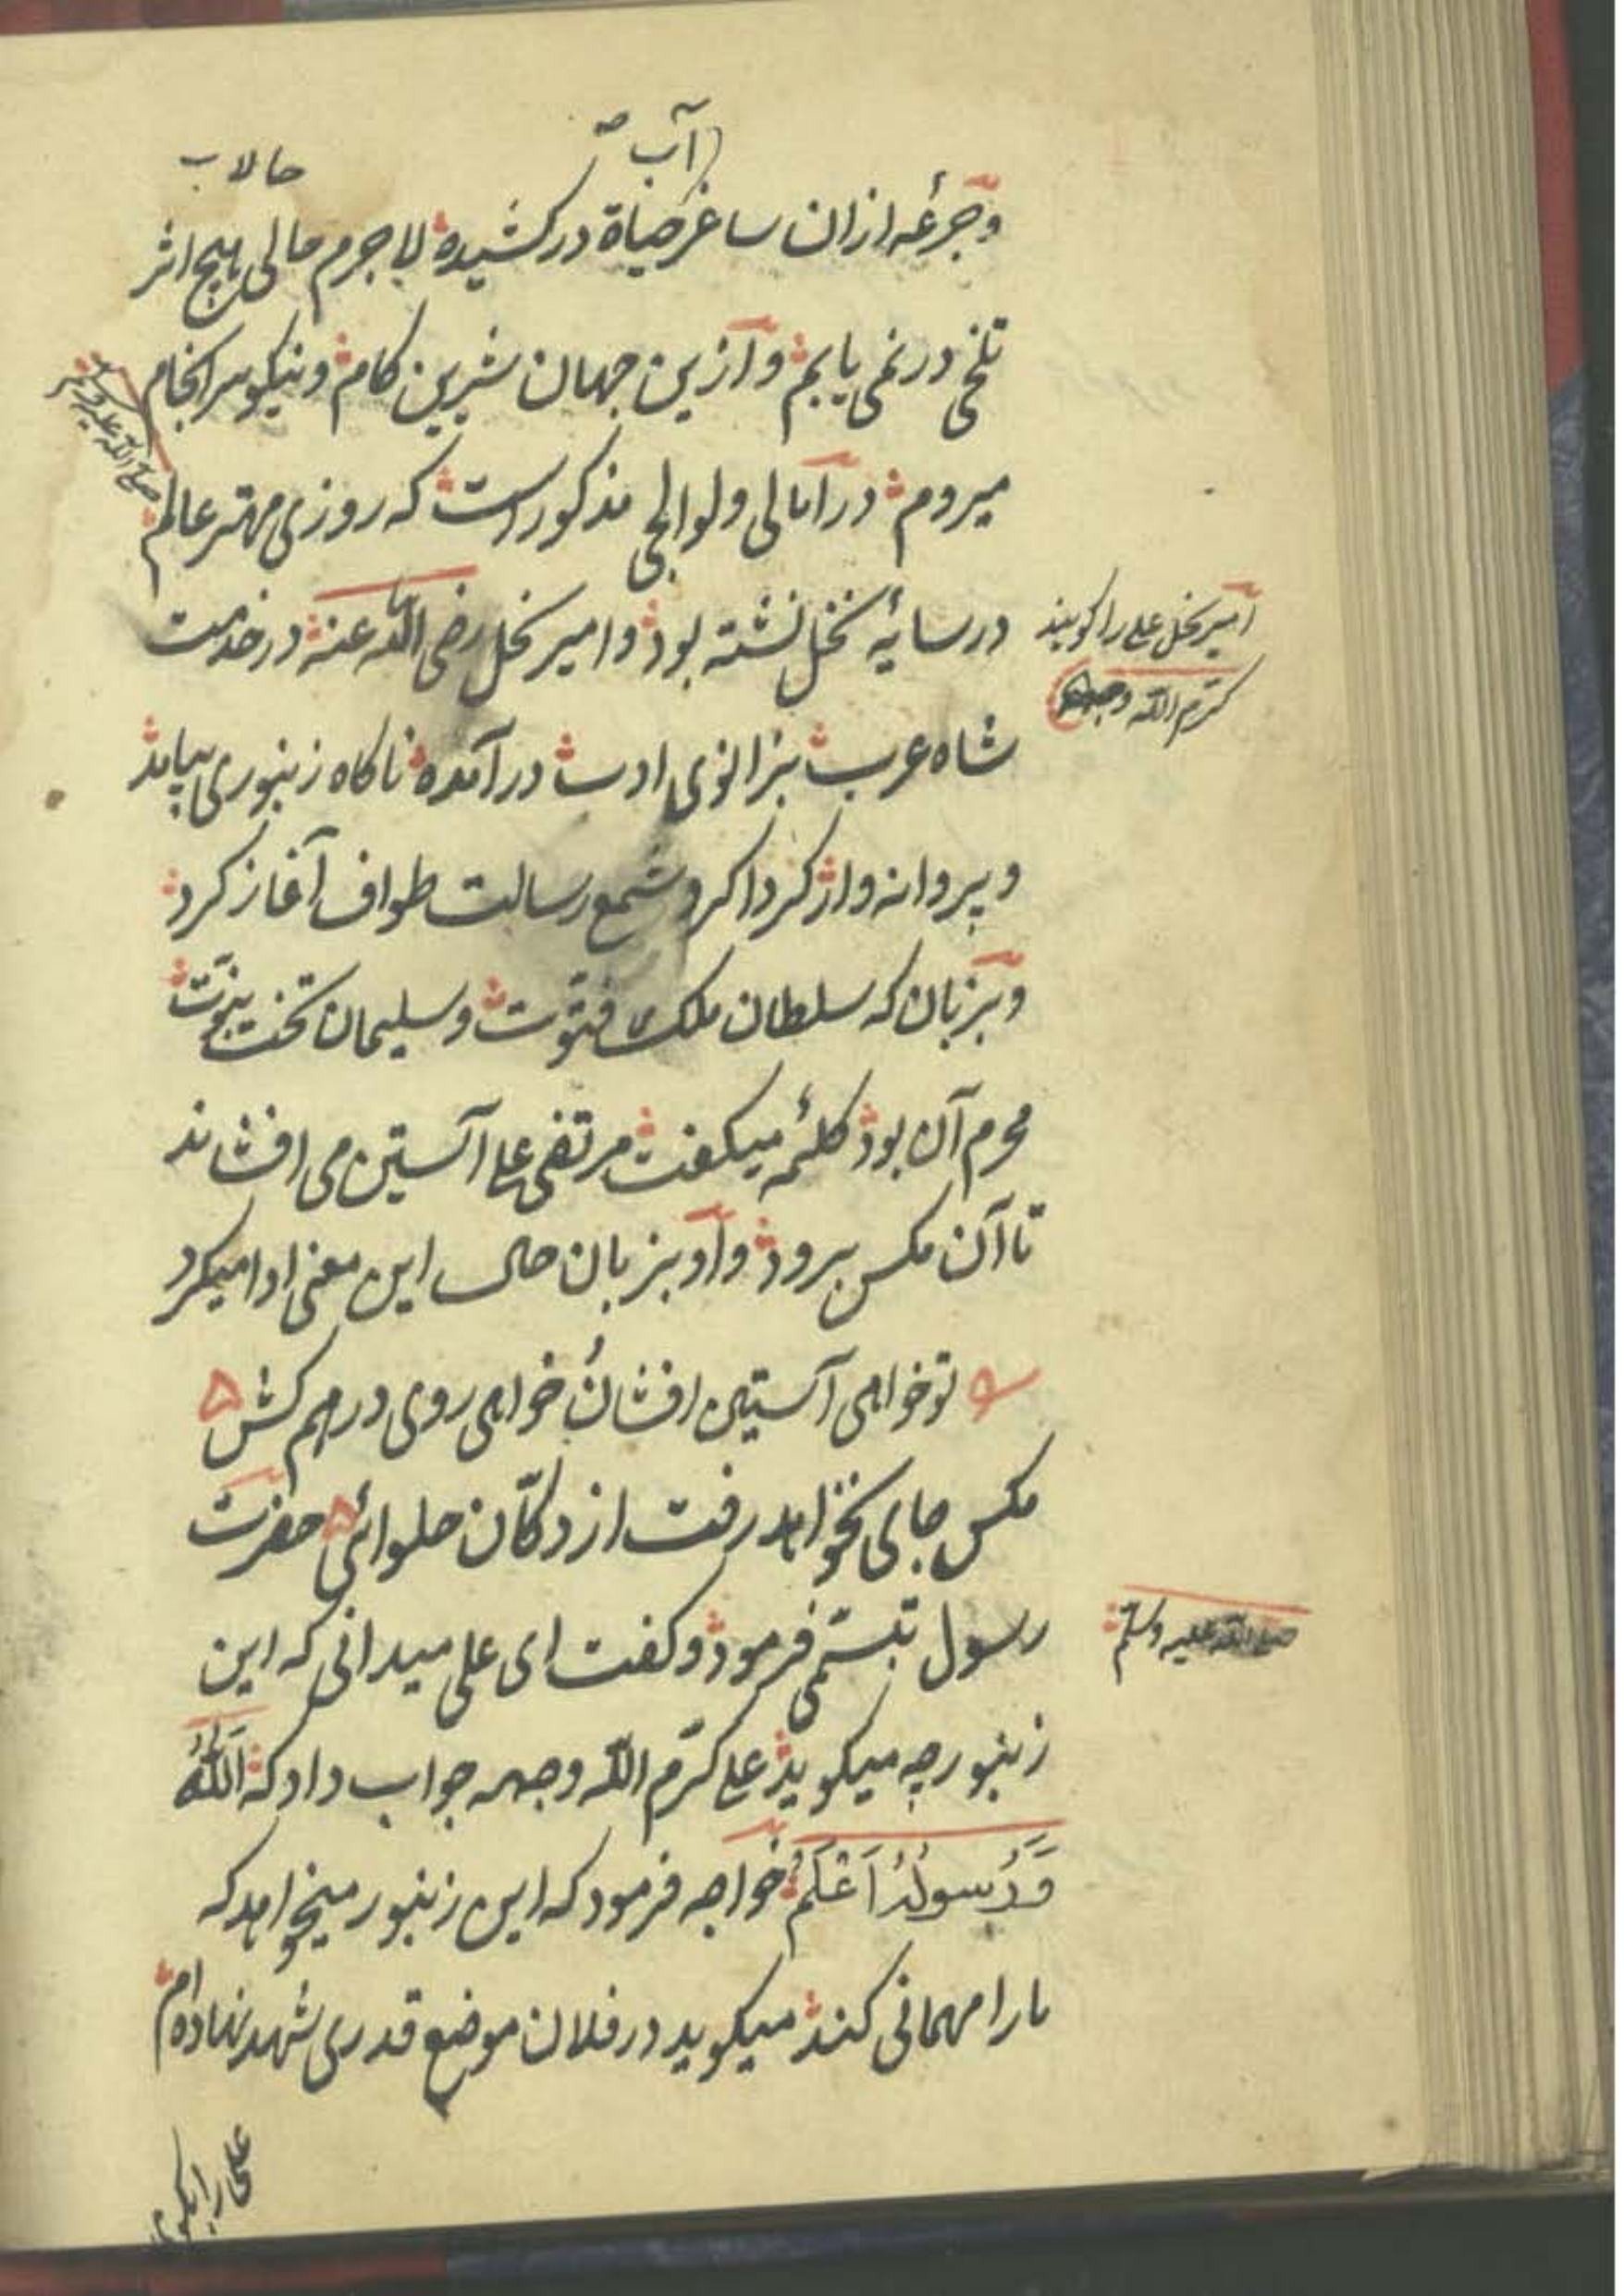 آب
حالاب
وجرعه ازان ساغر حیاة درکشیده لا جرم حالی هیچ اثر
تلخی در نمی یابم و ازین جهان شیرین کام و نیکو سرانجام
صلی الله علیه وسلم
میروم در امالی ولوالجی مذکور است که روزی مهتر عالم
در سایهٔ نخل نشسته بود و امیر نخل رضی الله عنه در خدمت
امیر نخل علی را کویند
کرّم الله وجهه
شاه عرب بزانوی ادب در آمده ناکاه زنبوری بیامد
و پروانه وار کرد اکرد شمع رسالت طواف آغاز کرد
و بزبان که سلطان ملک فتوّت و سلیمان تخت نبوّت
محرم آن بود کلمهٔ میکفت مرتضی علی آستین می افشاند
تا آن مکس برود و او بزبان حال این معنی ادا میکرد
تو خواهی آستین افشان خواهی روی درهم کش
مکس جای نخواهد رفت از دکّان حلوائی حضرت
رسول تبسّمی فرمود و کفت ای علی میدانی که این
صلی الله علیه وسلّم
زنبور چه میکوید علی کرّم الله وجهه جواب داد که اَللهُ
وَرَسولُهُ اَعْلَمُ خواجه فرمود که این زنبور میخواهد که
ما را مهمانی کند میکوید در فلان موضع قدری شهد نهاده ام
علی را بکوی